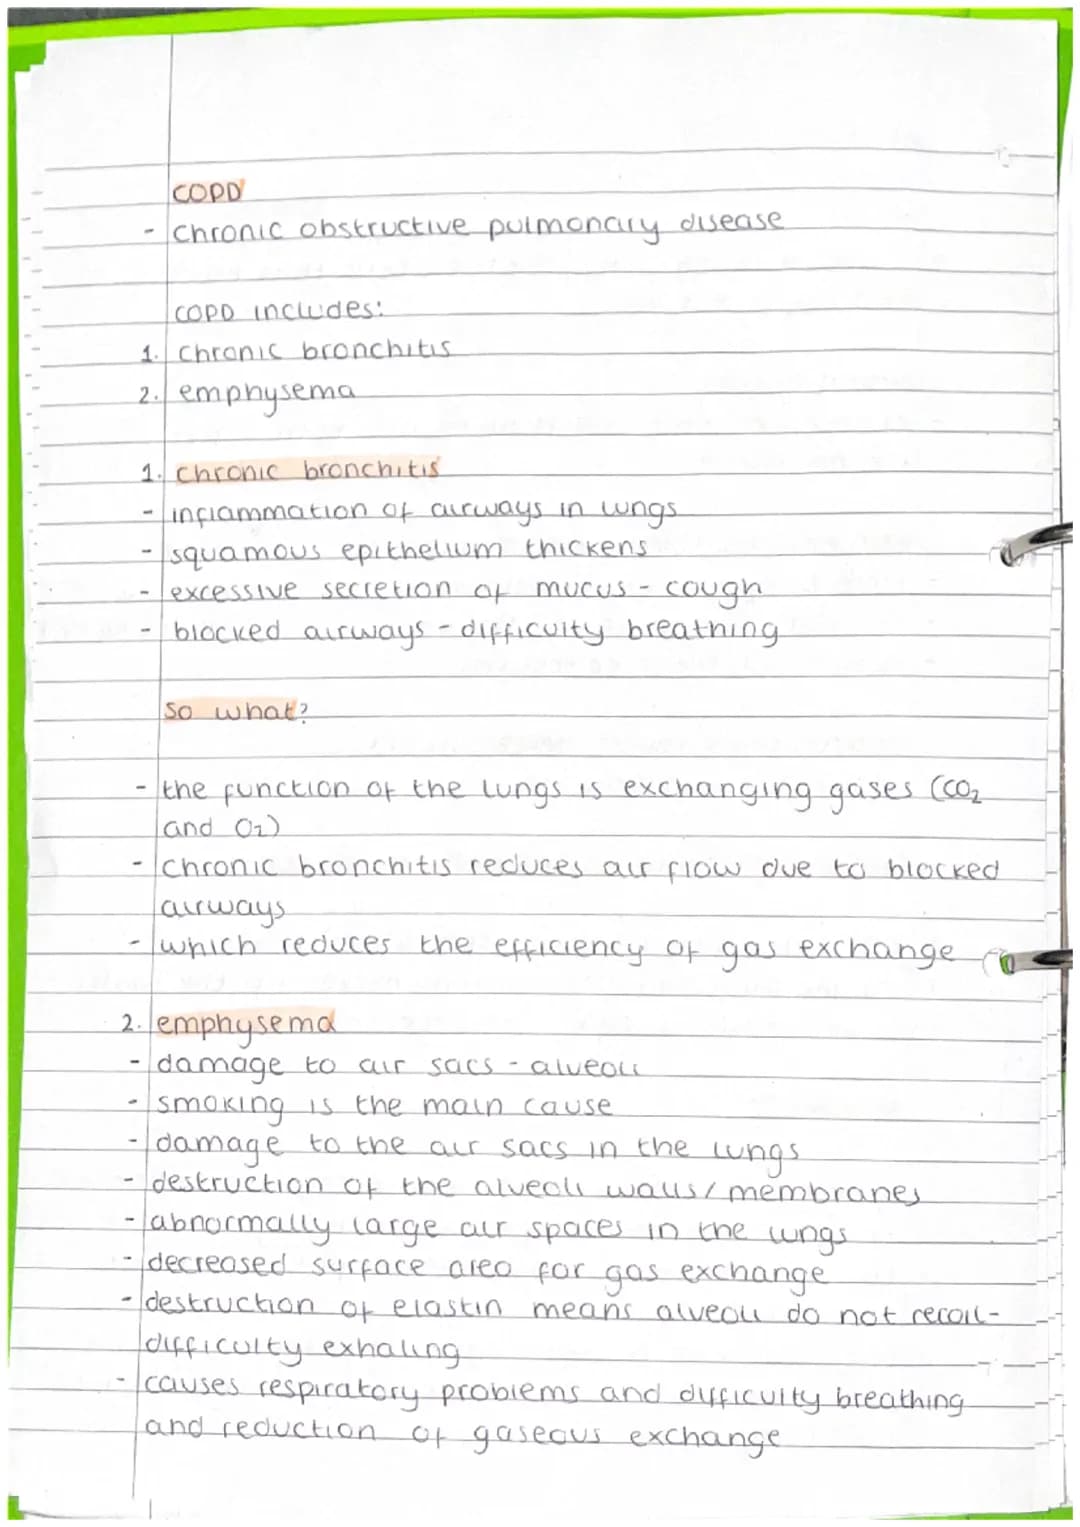 COPD
- chronic obstructive pulmonary disease
COPD includes:
1. chronic bronchitis
2. emphysema
1. chronic bronchitis
- inflammation of airways in lungs
- squamous epithelium thickens
- excessive secretion of mucus - cough
- blocked airways - difficulty breathing
So what?
- the function of the lungs is exchanging gases (CO₂
and O₂)
- chronic bronchitis reduces air flow due to blocked
airways
- which reduces the efficiency of gas exchange
2. emphysema
- damage to air sacs - alveoli
- smoking is the main cause
- damage to the air sacs in the lungs
- destruction of the alveoli walls/membranes
- abnormally large air spaces in the lungs
- decreased surface area for gas exchange
- destruction of elastin means alveoli do not recoil -
difficulty exhaling
- causes respiratory problems and difficulty breathing
and reduction of gaseous exchange